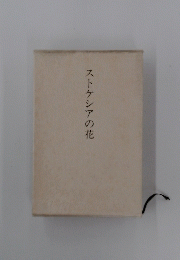 ストケシアの花